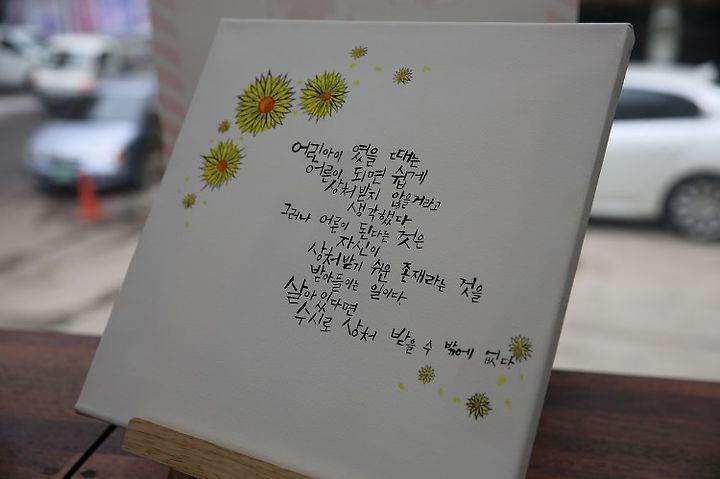 어린아이 였을 때는
어른이 되면 쉽게
상처받지 않을거라고
생각했다
그러나 어른이 된다는 것은
자신이
상처받기 쉬운 존재라는 것을
받아들이는 일이다.
살아있다면
수시로 상처 받을 수 밖에 없다.